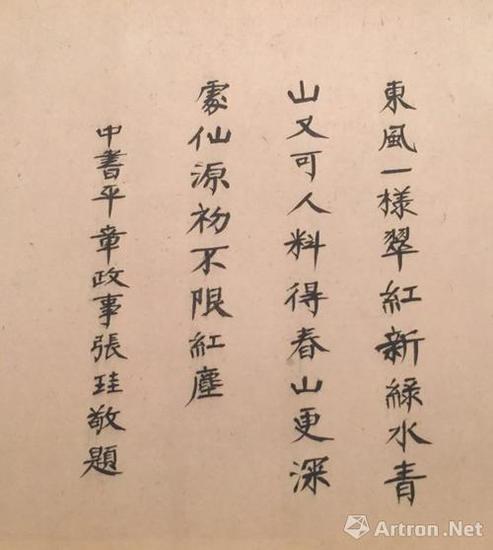 東風一樣翠紅新綠水青
山又可人料得春山更深
處仙源初不限紅塵
中書平章政事張珪敬題
Artron.Net